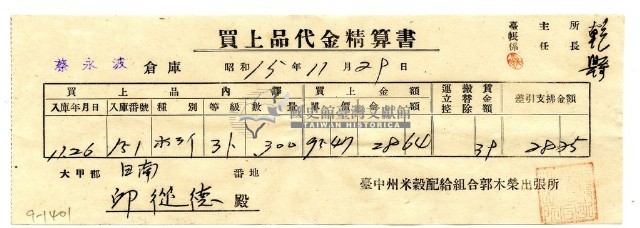 買上品代金精算書
所長
主任
臺帳係
蔡永波 倉庫 昭和15年11月29日
買上品內譯 買上金額 運立搬賃控替金除額 差引支拂金額
入庫年月日 入庫番號 種別 等級 數量 單價 金額
11.26 151 3 300 9547 2864 39 2825
大甲郡 日南 番地
邱從德 殿
臺中州米穀配給組合郭木榮出張所
國史館臺灣文獻館
TAIWAN HISTORICA
9-1401